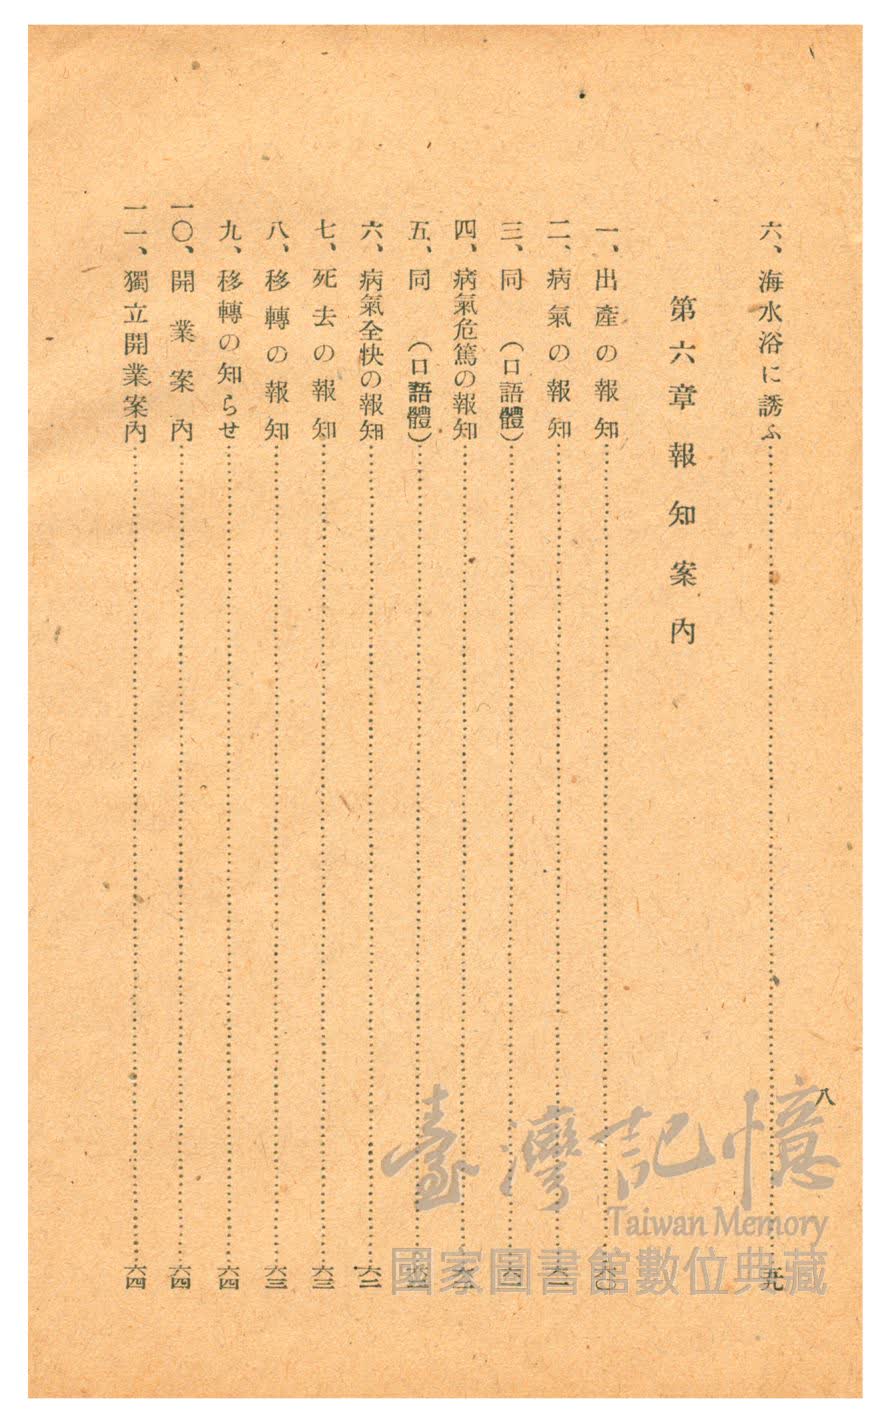 八
六、海水浴に誘ふ……五九
第六章 報知案内
一、出產の報知……六〇
二、病氣の報知……
三、同 (口語體)……六一
四、病氣危篤の報知……
五、同 (口語體)……
六、病氣全快の報知……六二
七、死去の報知……六三
八、移轉の報知……六三
九、移轉の知らせ……六四
一〇、開業案内……六四
一一、獨立開業案内……六四
臺灣記憶
Taiwan Memory
國家圖書館數位典藏